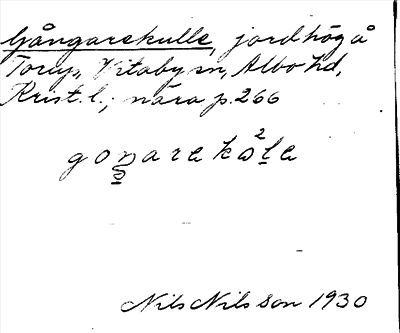 Gångarekulle, jordhög å
Torup, Vitaby sn, Albo hd,
Krist. l.; nära p. 266
goŋarekɷ²lə
Nils Nilsson 1930